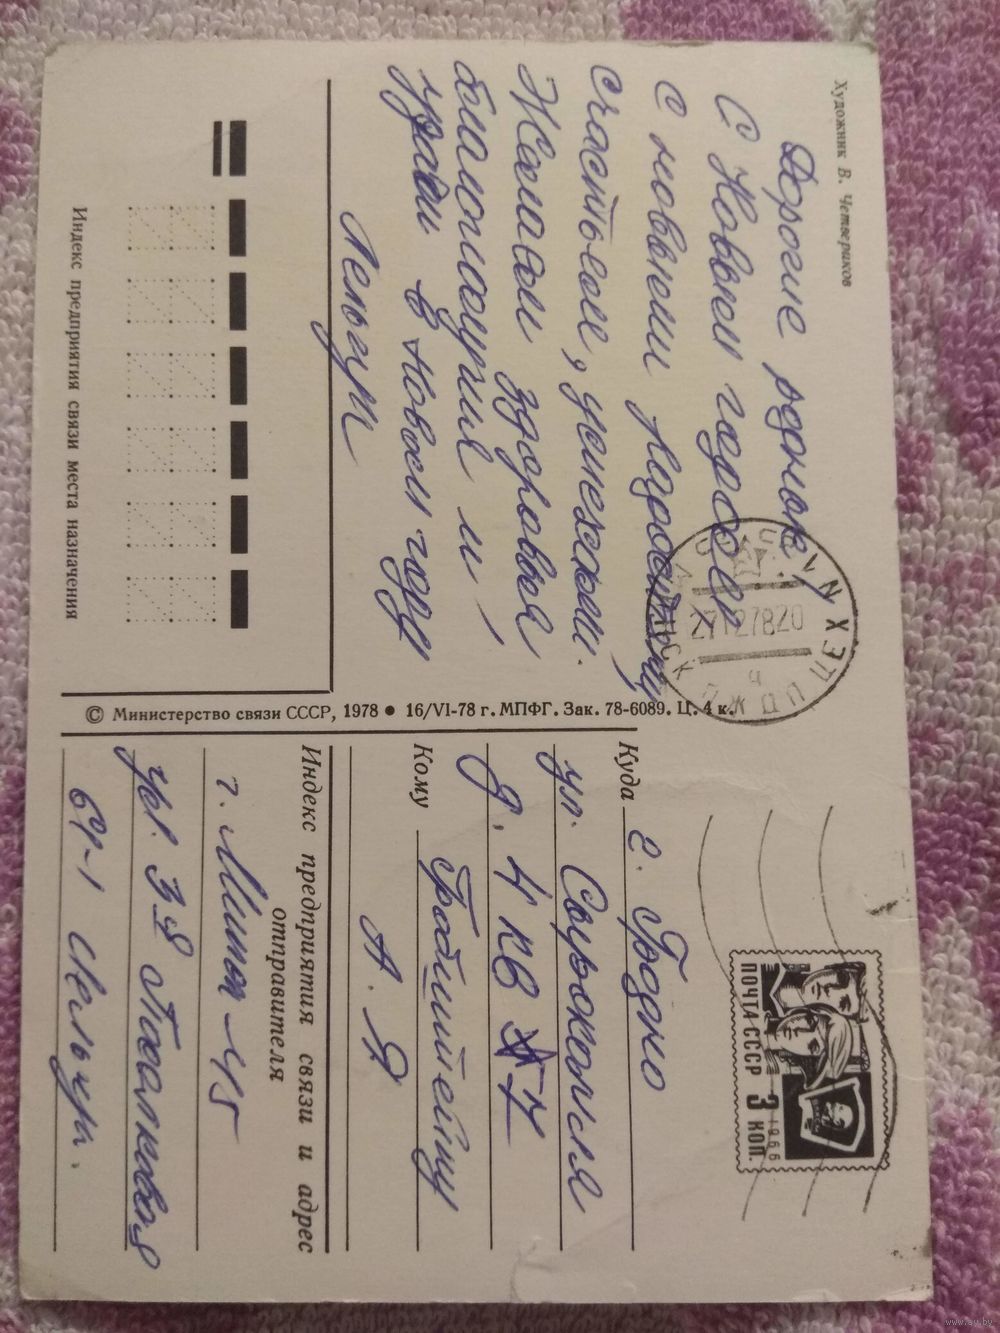 Художник В. Четвериков
Дорогие родные!
С Новым годом
с новыми радостями,
счастьем, успехами.
Желаем здоровья,
благополучия и
удачи в Новом году
Индекс предприятия связи места назначения
© Министерство связи СССР, 1978 • 16/VI-78 г. МПФГ. Зак. 78-6089. Ц. 4 к.
27 12 78 20
ПОЧТА СССР 3 КОП.
1966
Куда г. Гродно
ул. Свирокомля
д. 4 кв 7
Кому
А. Я
Индекс предприятия связи и адрес отправителя
г. Минск-45
ул. 3я
61-1
www.ay.by